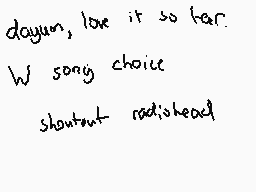 dayum, love it so far.
W song choice
shoutout radiohead